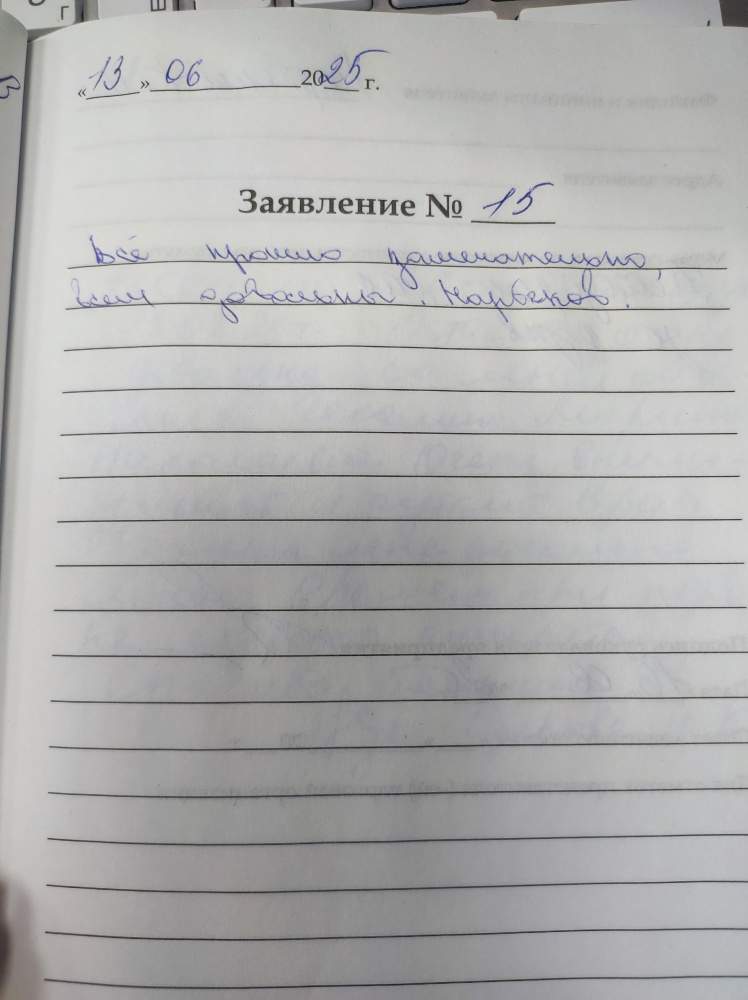 «13» 06 2025 г.
Заявление № 15
Всё прошло замечательно,
всем довольны.